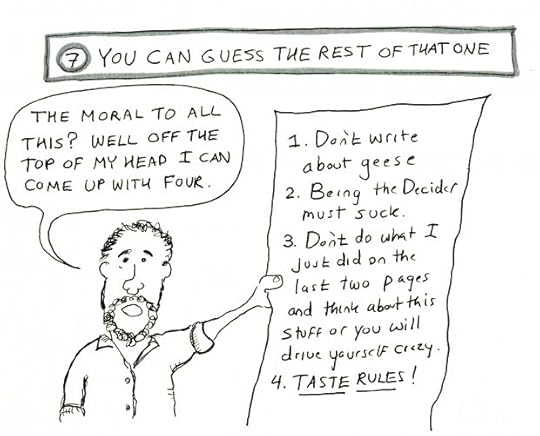 7 YOU CAN GUESS THE REST OF THAT ONE
THE MORAL TO ALL
THIS? WELL OFF THE
TOP OF MY HEAD I CAN
COME UP WITH FOUR.
1. Don't write
about geese
2. Being the Decider
must suck.
3. Don't do what I
just did on the
last two pages
and think about this
stuff or you will
drive yourself crazy.
4. TASTE RULES!